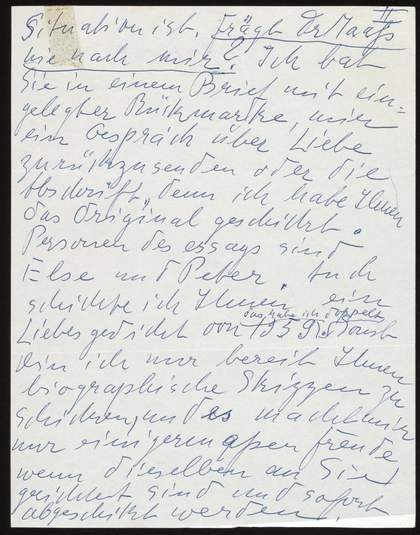 II
Situation ist. Frägt Dr Maass
nie nach mir? Ich bat
Sie in einem Brief mit ein-
gelegter Rückmarke, mir
ein Gespräch über Liebe
zurückzusenden oder die
Abschrift, denn ich habe Ihnen
das Original geschickt.
Personen des essays sind
Else und Peter. Auch
schickte ich Ihnen ein
das habe ich doppelt
Liebesgedicht von 1959. Sonst
bin ich nur bereit Ihnen
biographische Skizzen zu
schicken, und es macht mir
nur einigermassen freude
wenn dieselben an Sie
gerichtet sind und sofort
abgeschickt werden.